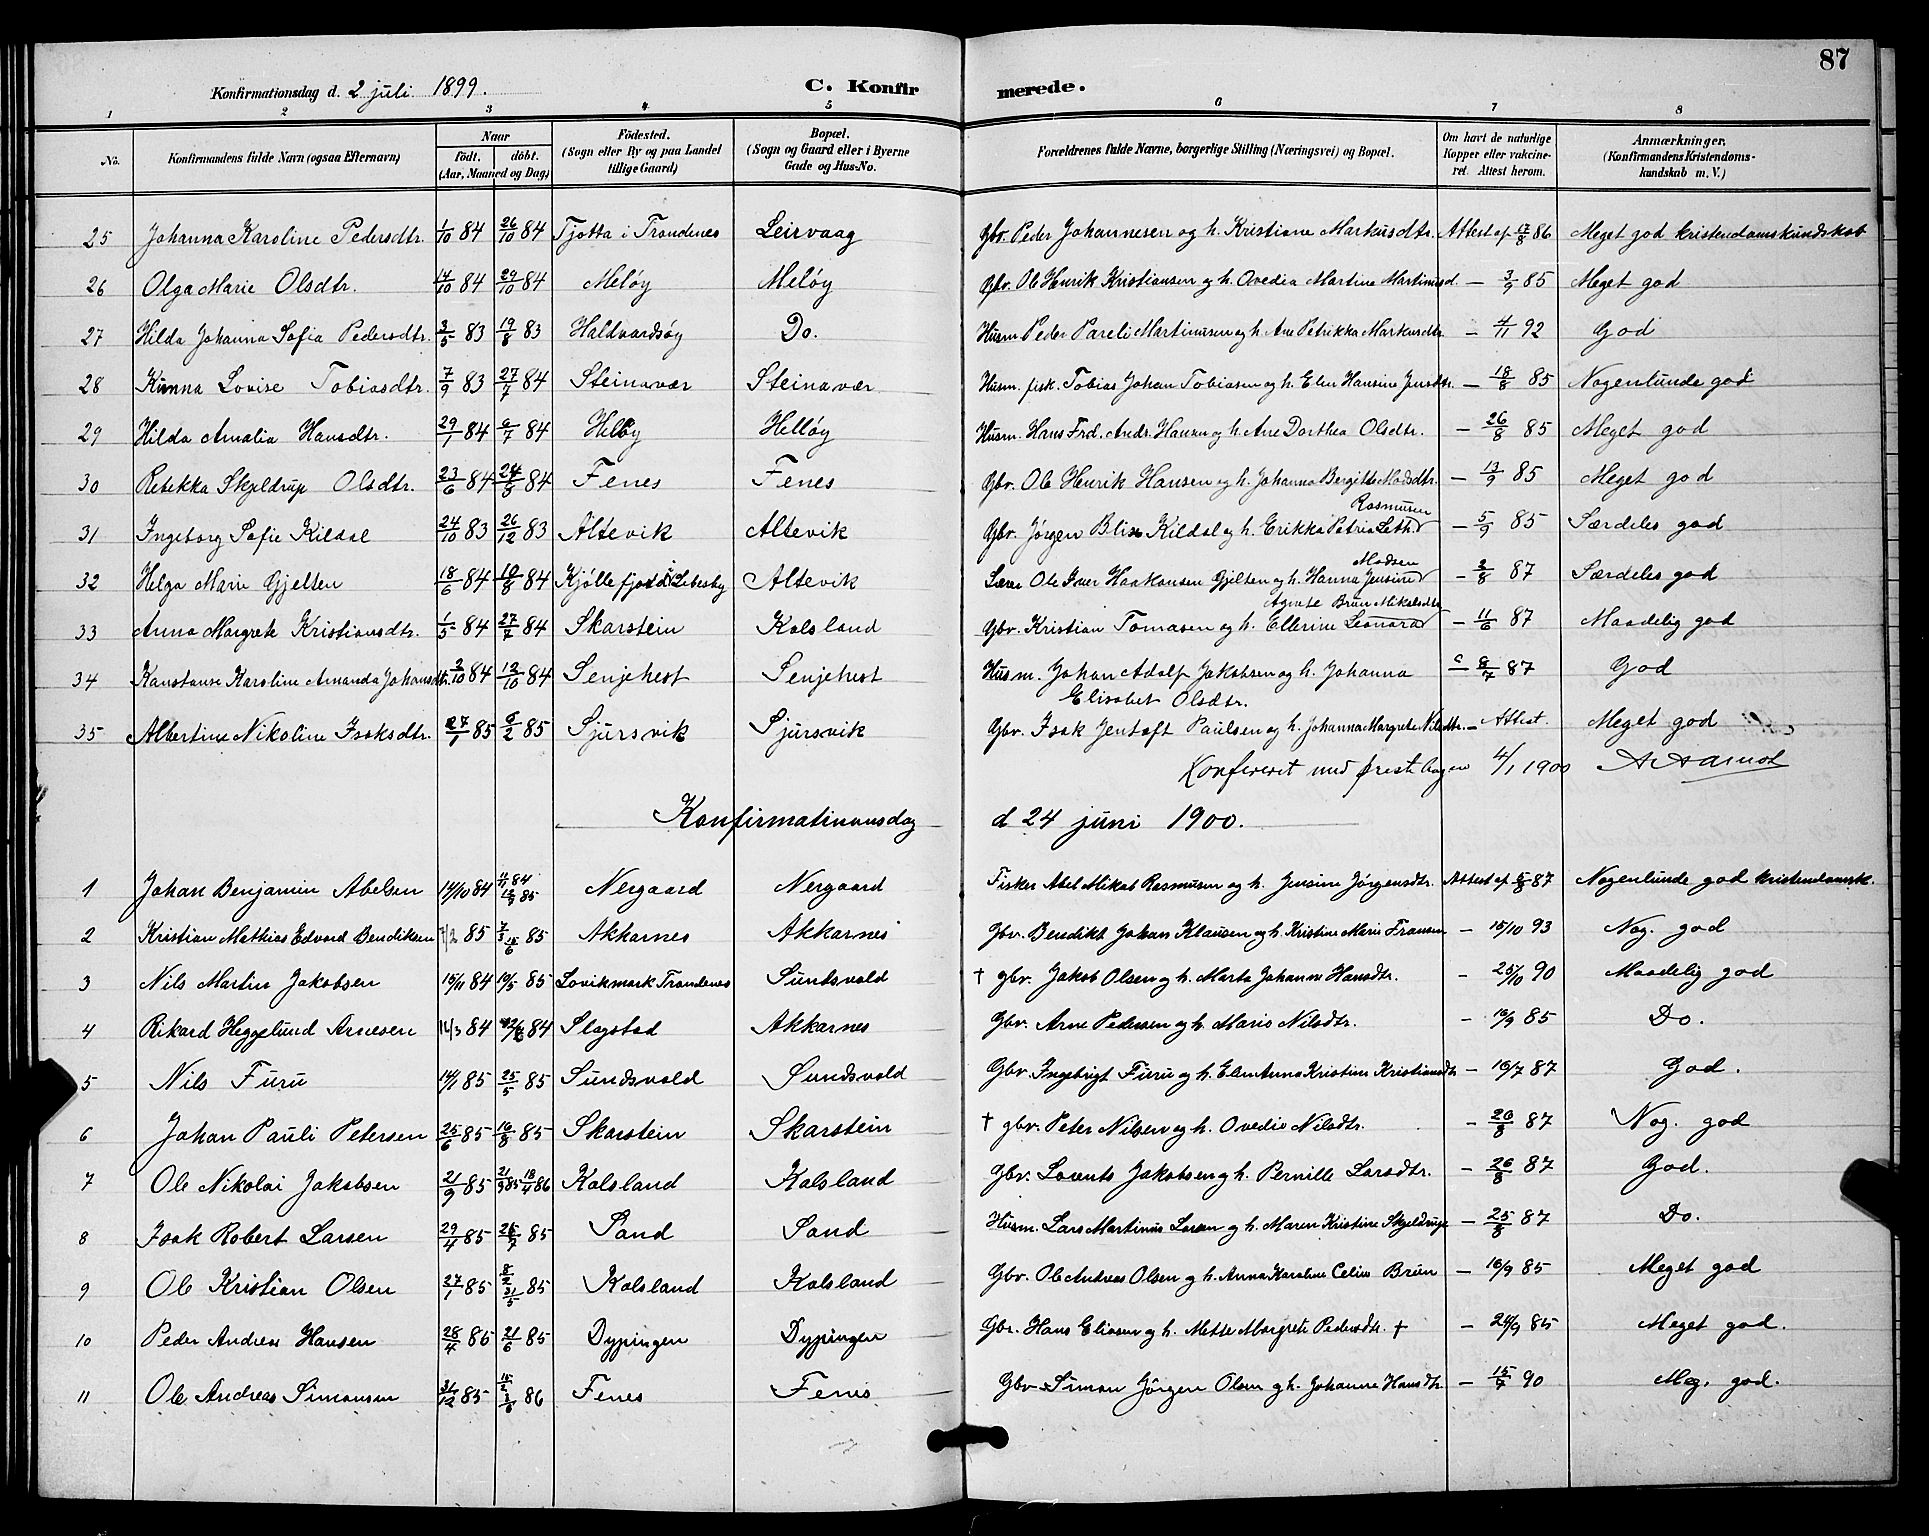 87
Konfirmationsdag d. 2 juli 1899. C. Konfirmerede.
1 2 3 4 5 6 7 8
No. Konfirmandens fulde Navn (ogsaa Efternavn) Naar födt. döbt. (Aar, Maaned og Dag) Födested. (Sogn eller By og paa Landet tillige Gaard) Bopæl. (Sogn og Gaard eller i Byerne Gade og Hus-No. Forældrenes fulde Navne, borgerlige Stilling (Næringsvei) og Bopæl. Om havt de naturlige Kopper eller vakcineret. Attest herom. Anmærkninger. (Konfirmandens Kristendomskundskab m. V.)
25 Johanna Karoline Pedersdtr. 1/10 84 26/10 84 Tjotta i Trondenes Leirvaag Gbr. Peder Johannesen og h. Kristiane Markusdtr. Attest af 17/8 86 Meget god kristendomskundskab
26 Olga Marie Olsdtr. 14/10 84 29/10 84 Meløy Meløy Gbr. Ole Henrik Kristiansen og h. Ovedia Martine Martinusd. — 3/9 85 Meget god
27 Hilda Johanna Sofia Pedersdtr. 3/5 83 19/8 83 Haldvardsøy Do. Husm. Peder Pareli Martinusen og h. Ane Petrikka Markusdtr. — 4/11 92 God
28 Kinna Lovise Tobiasdtr. 7/9 83 27/7 84 Steinavær Steinavær Husm. fisk. Tobias Johan Tobiasen og h. Elen Hansine Jensdtr. — 18/8 85 Nogenlunde god
29 Hilda Amalia Hansdtr. 29/1 84 6/7 84 Helløy Helløy Husm. Hans Frd. Andr. Hansen og h. Ane Dorthea Olsdtr. — 26/8 85 Meget god
30 Rebekka Skjeldrup Olsdtr. 23/6 84 24/8 84 Fenes Fenes Gbr. Ole Henrik Hansen og h. Johanna Bergitte Madsdtr. — 13/9 85 Meget god
31 Ingeborg Sofie Kildal 24/10 83 26/12 83 Altevik Altevik Gbr. Jørgen Blix Kildal og h. Erikka Petria Leth Rasmusen — 5/9 85 Særdeles god
32 Helga Marie Gjelten 18/6 84 10/8 84 Kjøllefjord i Lebesby Altevik Lærer Ole Iver Haakonsen Gjelten og h. Hanna Jensine Madsen — 2/8 87 Særdeles god
33 Anna Margrete Kristiansdtr. 1/5 84 27/7 84 Skarstein Kalsland Gbr. Kristian Tomasen og h. Ellerine Leonara Agnete Brun Mikalsdtr — 11/6 87 Maadelig god
34 Konstanse Karoline Amanda Johansdtr. 2/10 84 12/10 84 Senjehest Senjehest Husm. Johan Adolf Jakobsen og h. Johanna Elisabet Olsdtr. — 8/7 87 God
35 Albertine Nikoline Isaksdtr. 27/1 85 8/2 85 Sjursvik Sjursvik Gbr. Isak Jentoft Paulsen og h. Johanna Margrete Nilsdtr. — Attest. Meget god
Konfereret med prestebogen 4/1 1900 A Aarnot
Konfirmationsdag d 24 juni 1900.
1 Johan Benjamin Abelsen 14/10 84 11/11 84 Nergaard Nergaard Fisker Abel Mikal Rasmusen og h. Jensine Jørgensdtr. Attest af 5/8 87 Nogenlunde god kristendomsk.
2 Kristian Mathias Edvard Bendiksen 7/2 85 85 Akkarnes Akkarnes Gbr. Bendikt Johan Klausen og h. Kristine Marie Fransen — 15/10 93 Nog. god
3 Nils Martin Jakobsen 15/11 84 10/5 85 Lovikmark Trondenes Sundsvold † gbr. Jakob Olsen og h. Marta Johanne Hansdtr. — 25/10 90 Maadelig god
4 Rikard Heggelund Arnesen 14/3 84 84 Slagstad Akkarnes Gbr. Arne Pedersen og h. Maria Nilsdtr. — 10/9 85 Do.
5 Nils Furu 14/1 85 25/5 85 Sundsvold Sundsvold Gbr. Ingebrigt Furu og h. Elen Anna Kristine Kristiansdtr — 10/7 87 God.
6 Johan Pauli Petersen 25/6 85 16/8 85 Skarstein Skarstein † gbr. Peter Nilsen og h. Ovedia Nilsdtr. — 20/8 87 Nog. god
7 Ole Nikolai Jakobsen 21/9 85 21/9 85 18/4 86 Kalsland Kalsland Gbr. Lorents Jakobsen og h. Pernille Larsdtr. — 26/8 87 God.
8 Isak Robert Larsen 29/4 85 26/7 85 Sand Sand Husm. Lars Martinus Larsen og h. Maren Kristine Skjeldrup — 25/8 87 Do.
9 Ole Kristian Olsen 27/1 85 8/2 31/5 85 Kalsland Kalsland Gbr. Ole Andreas Olsen og h. Anna Karoline Celius Brun — 10/9 85 Meget god
10 Peder Andreas Hansen 28/4 85 21/6 85 Dypingen Dypingen Gbr. Hans Eliasen og h. Mette Margrete Pedersdtr. † — 24/9 85 Meget god.
11 Ole Andreas Simonsen 31/12 85 86 Fenes Fenes Gbr. Simon Jørgen Olsen og h. Johanne Hansdtr. — 15/7 90 Meg. god.